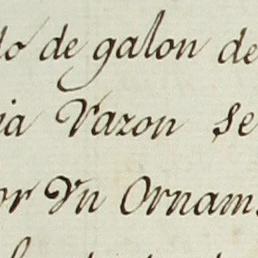 do de galon de
ia Vazon Se
or Vn Ornam